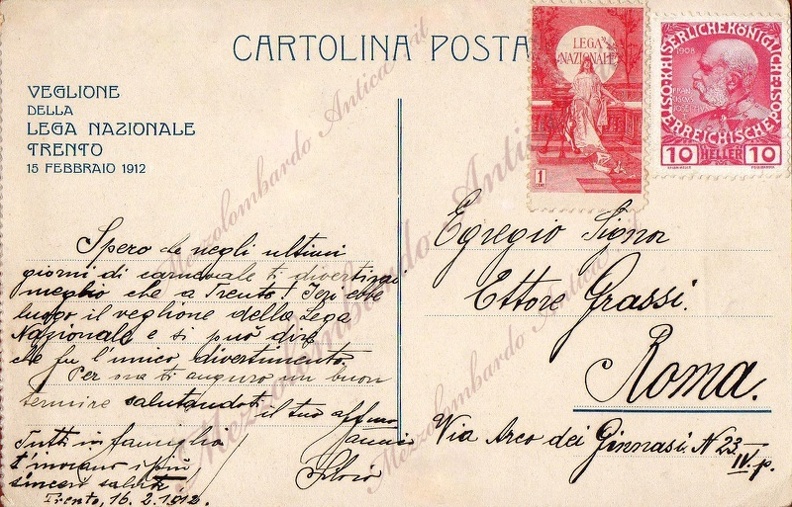 CARTOLINA POSTA
VEGLIONE
DELLA
LEGA NAZIONALE
TRENTO
15 FEBBRAIO 1912
LEGA
NAZIONALE
1
1908
KAISERLICHEKÖNIGLICHE
ÖSTERREICHISCHEPOST
10 HELLER 10
Spero che negli ultimi
giorni di carnevale ti divertirai
meglio che a Trento! Ieri ebbe
luogo il veglione della Lega
Nazionale e si può dire
che fu l'unico divertimento.
Per ora ti auguro un buon
termine salutandoti il tuo affmo
Silvio
Tutti in famiglia
t'inviano i più
sinceri saluti
Trento, 16.2.1912.
Egregio Signor
Ettore Grassi.
Roma.
Via Arco dei Ginnasi. N 23
IV. p.
Mezzolombardo Antica.it
Mezzolombardo Antica.it
Mezzolombardo Antica.it